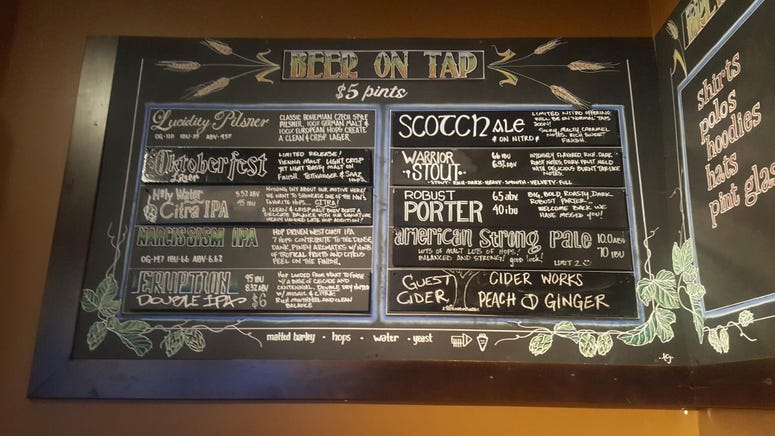 BEER ON TAP
$5 pints
Lucidity Pilsner
CLASSIC BOHEMIAN CZECH STYLE
PILSNER, 100% GERMAN MALT &
100% EUROPEAN HOPS CREATE
A CLEAN & CRISP LAGER
Oktoberfest
Lager
LIMITED RELEASE!
VIENNA MALT LIGHT CRISP
FINISH.
Holy Water
Citra IPA
5.52 ABV
45 IBU
NOTHING SHY ABOUT OUR MOTIVE HERE! WE
WANT TO SHOWCASE ONE OF THE NW'S
FAVORITE HOPS... CITRA!
DELICATE BALANCE WITH OUR SIGNATURE
LATE HOP ADDITION!
NARCISSISM IPA
OG-147 IBU-66 ABV-6.62
HOP DRIVEN WEST COAST IPA
7 HOPS CONTRIBUTE TO THE DENSE,
DANK, PINEY AROMATICS W/ HNB
OF TROPICAL FRUITS AND CITRUS
PEEL ON THE FINISH.
ERUPTION
DOUBLE IPA
95 IBU
8.32 ABV
$6
HOP LOADED FROM START TO FINISH
CASCADE AND
CENTENNIAL. DOUBLE DRY HOPPED
W/ MOSAIC & CITRA.
RICH MOUTHFEEL AND CLEAN
BALANCE
SCOTCH ALE
* ON NITRO *
LIMITED NITRO OFFERING
WILL BE ON NORMAL TAPS
SOON!
SILKY, MALTY, CARAMEL
NOTES. RICH SWEET
FINISH.
WARRIOR
STOUT
66 IBU
6.92 ABV
INTENSELY FLAVORED, RICH, DARK
ROAST NOTES, DARK FRUIT MELD
WITH DELICIOUS BURNT
NOTES.
STOUT: RICH - DARK - HEAVY - SMOOTH - VELVETY - FULL
ROBUST
PORTER
6.5 abv
40 ibu
BIG, BOLD, ROASTY, DARK
ROBUST PORTER!
WELCOME BACK WE
HAVE MISSED YOU!
american strong Pale
LOTS OF MALT LOTS OF HOPS!
BALANCED AND STRONG! good luck!
10.0 abv
70 IBU
LIMIT 2
GUEST
CIDER
CIDER WORKS
PEACH & GINGER
malted barley · hops · water · yeast
shirts
polos
hoodies
hats